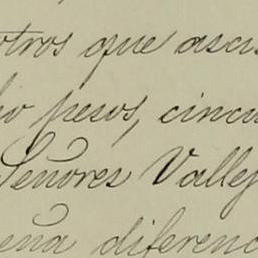 otros que asci
ho pesos, cincu
Señores Vallej
ena diferenc